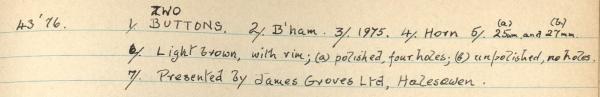 TWO
43'76. 1/ BUTTONS. 2/ B'ham. 3/ 1975. 4/ Horn 5/ (a) 25mm and (b) 27mm.
6/ Light brown, with rim; (a) polished, four holes; (b) unpolished, no holes.
7/ Presented by James Groves Ltd, Halesowen.